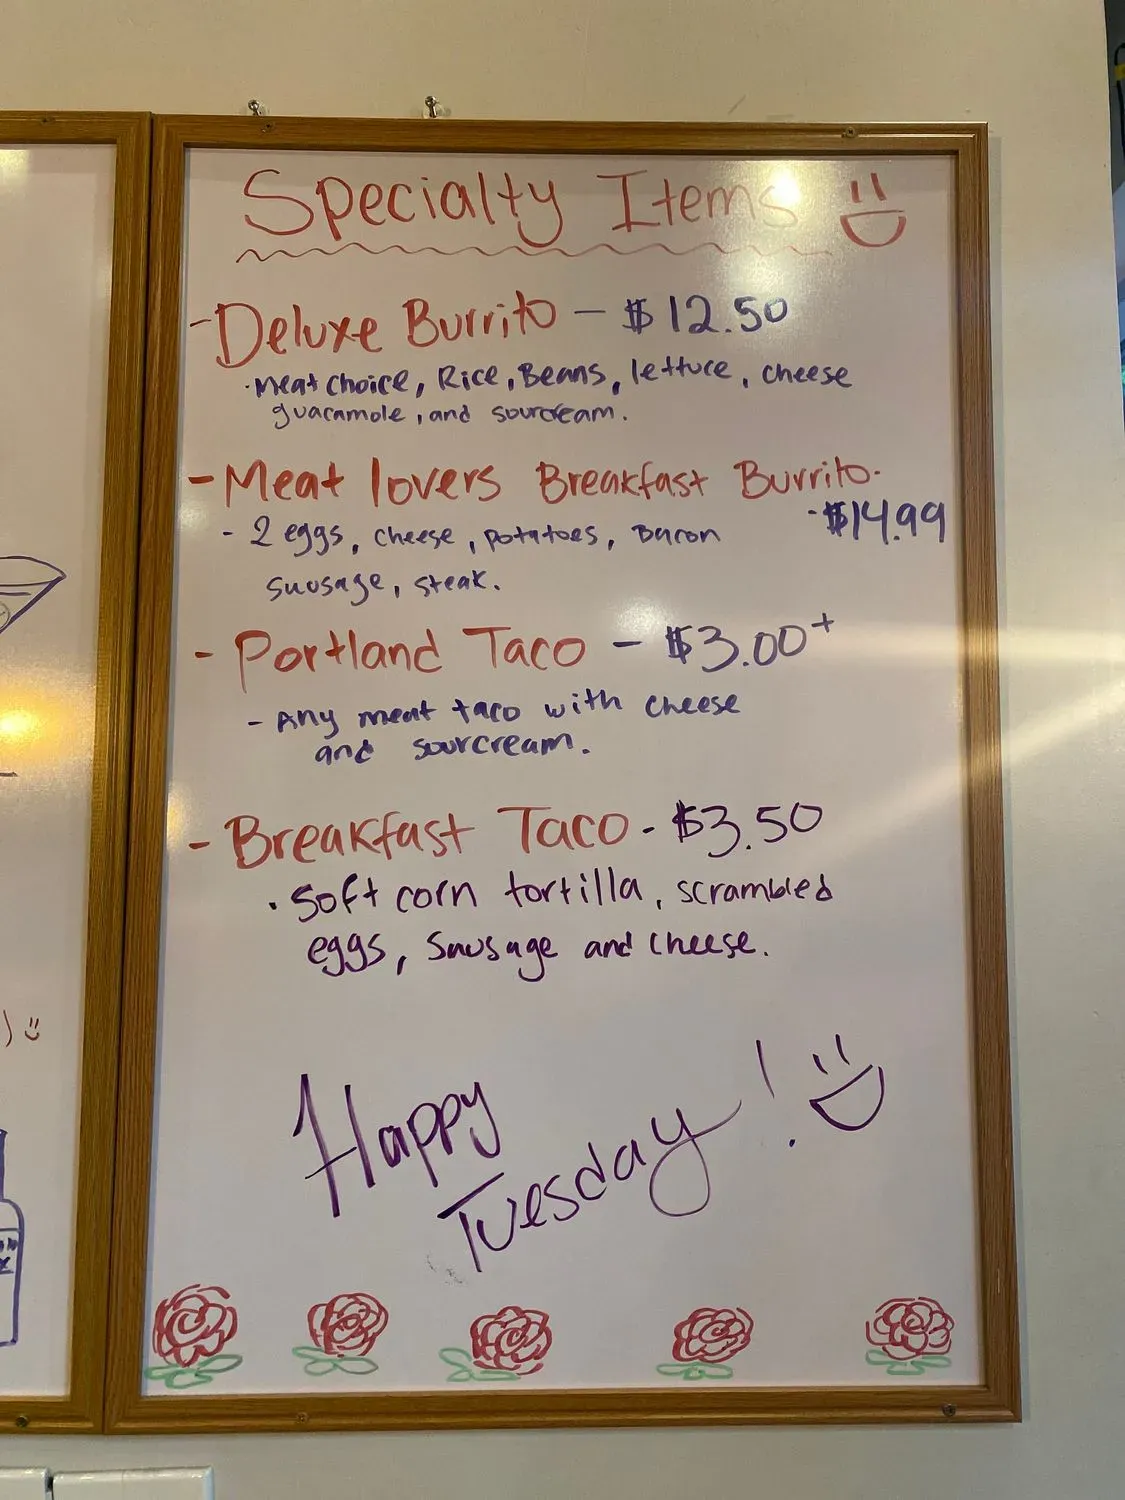 Specialty Items
- Deluxe Burrito - $12.50
· meat choice, Rice, Beans, lettuce, cheese
guacamole, and sourcream.
- Meat lovers Breakfast Burrito.
- $14.99
- 2 eggs, cheese, potatoes, Bacon
sausage, steak.
- Portland Taco - $3.00+
- Any meat taco with cheese
and sourcream.
- Breakfast Taco - $3.50
· Soft corn tortilla, scrambled
eggs, Sausage and cheese.
Happy
Tuesday!